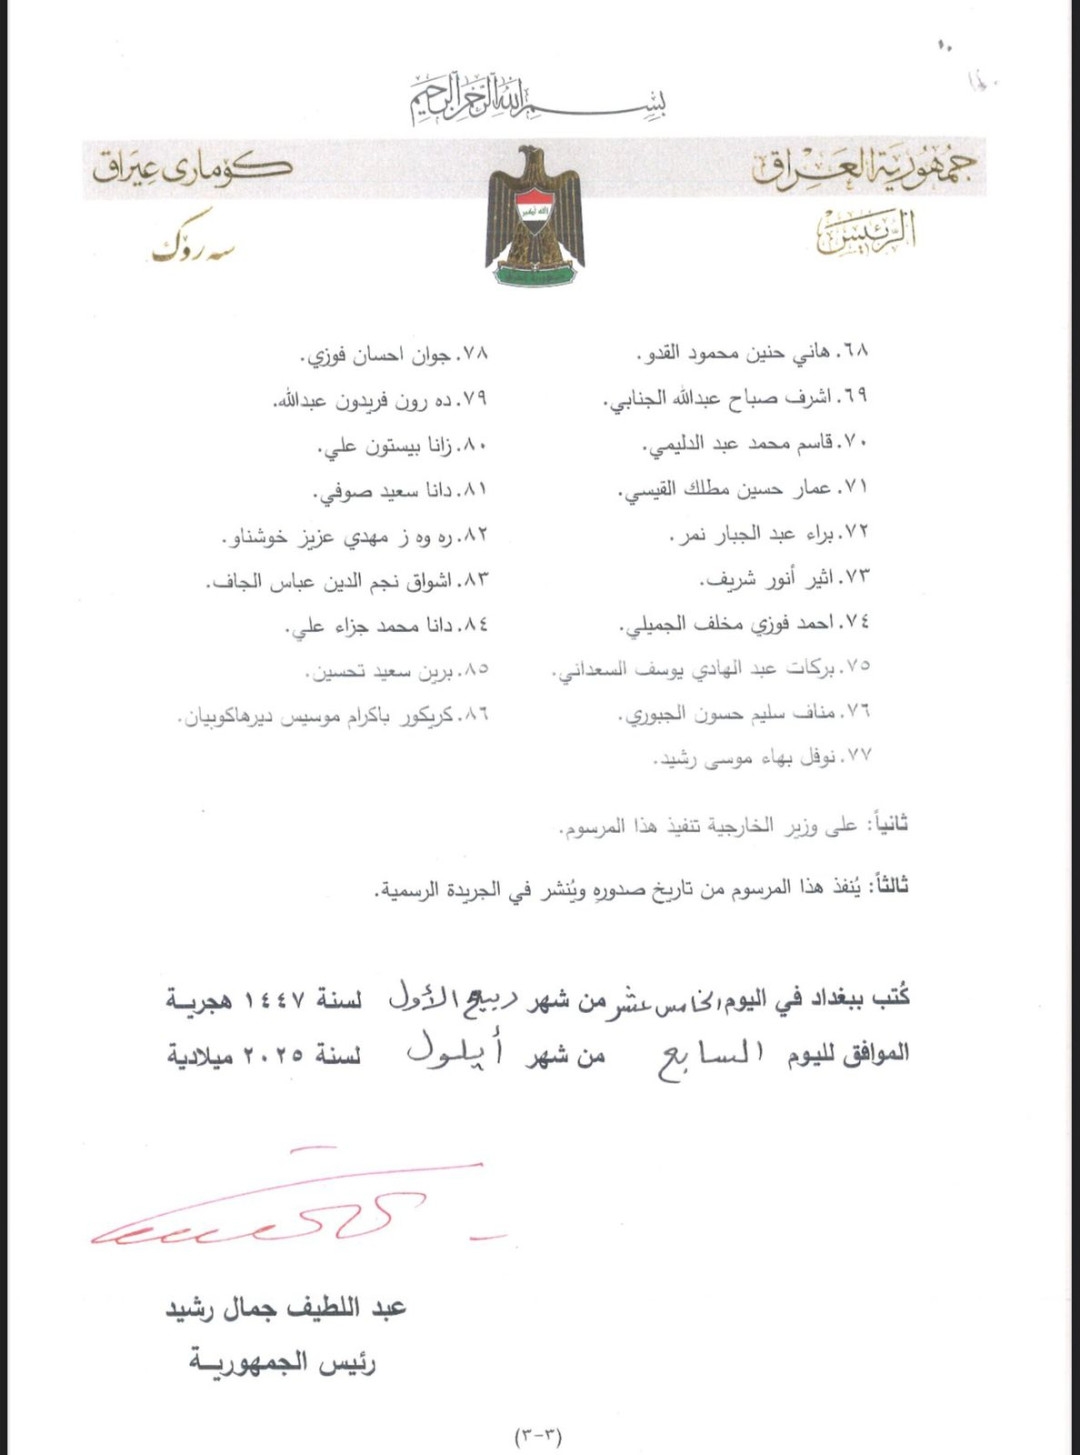 بسم الله الرحمن الرحيم
جمهورية العراق
كۆماری عێراق
الرئيس
سەرۆك
الله أكبر
٦٨. هاني حنين محمود القدو.
٦٩. اشرف صباح عبدالله الجنابي.
٧٠. قاسم محمد عبد الدليمي.
٧١. عمار حسين مطلك القيسي.
٧٢. براء عبد الجبار نمر.
٧٣. اثير أنور شريف.
٧٤. احمد فوزي مخلف الجميلي.
٧٥. بركات عبد الهادي يوسف السعداني.
٧٦. مناف سليم حسون الجبوري.
٧٧. نوفل بهاء موسى رشيد.
٧٨. جوان احسان فوزي.
٧٩. ده رون فريدون عبدالله.
٨٠. زانا بيستون علي.
٨١. دانا سعيد صوفي.
٨٢. ره وه ز مهدي عزيز خوشناو.
٨٣. اشواق نجم الدين عباس الجاف.
٨٤. دانا محمد جزاء علي.
٨٥. برين سعيد تحسين.
٨٦. كريكور باكرام موسيس ديرهاكوبيان.
ثانياً: على وزير الخارجية تنفيذ هذا المرسوم.
ثالثاً: يُنفذ هذا المرسوم من تاريخ صدوره ويُنشر في الجريدة الرسمية.
كُتب ببغداد في اليوم الخامس عشر من شهر ربيع الأول لسنة ١٤٤٧ هجريـة
الموافق لليوم السابع من شهر أيلول لسنة ٢٠٢٥ ميلادية
عبد اللطيف جمال رشيد
رئيس الجمهوريـة
(٣-٣)